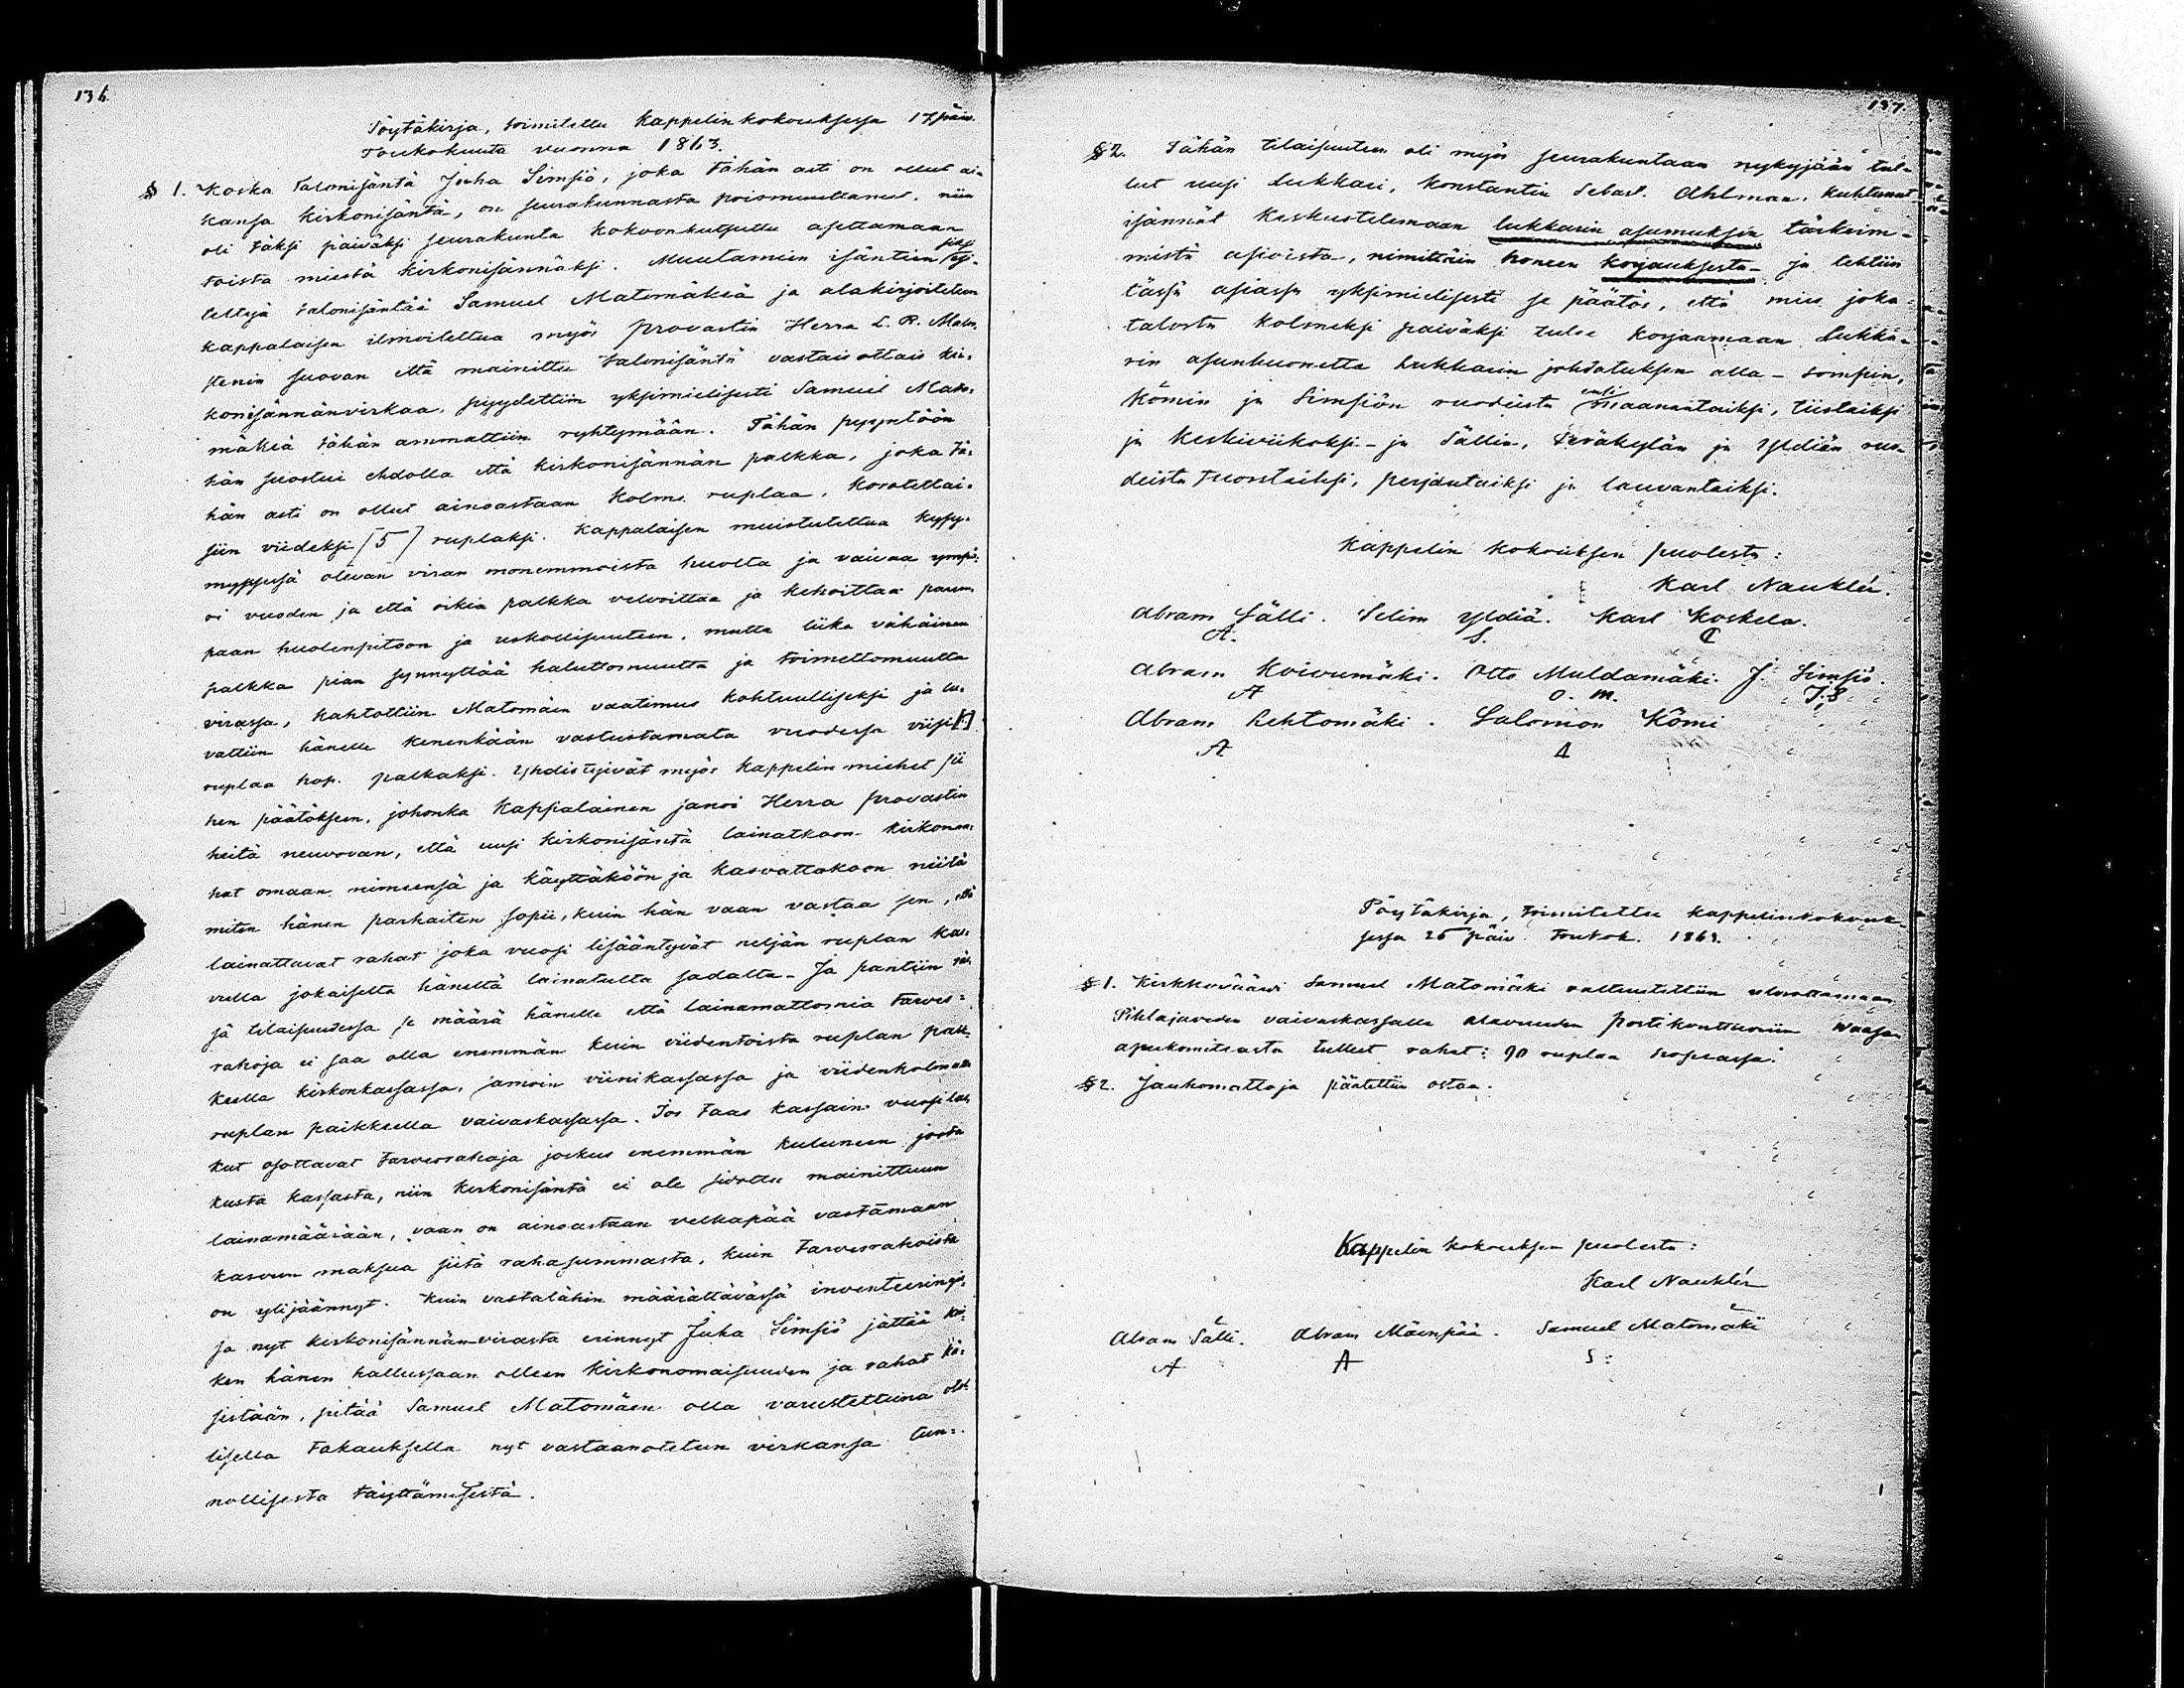 136.
Pöytäkirja, toimitettu Kappelinkokouksessa 17 päiv.
Toukokuuta vuonna 1863.
§ 1. Koska talonisäntä Juha Simsiö, joka tähän asti on ollut ai-
kansa kirkonisäntä, on seurakunnasta poismuuttanut, niin
oli täksi päiväksi seurakunta kokoonkutsuttu asettamaan
toista miestä kirkonisännäksi. Muutamien isäntien siksi esi-
teltyä talonisäntää Samuel Matomäkiä ja alakirjoitetun
kappalaisen ilmoitettua myös Provastin Herra L. R. Malm-
stenin suovan että mainittu talonisäntä vastaisottais kir-
konisännänvirkaa, pyydettiin yksimielisesti Samuel Mato-
mäkiä tähän ammattiin ryhtymään. Tähän pyyntöön
hän suostui ehdolla että kirkonisännän palkka, joka tä-
hän asti on ollut ainoastaan kolme ruplaa, korotettai-
siin viideksi [5] ruplaksi. Kappalaisen muistutettua kysy-
myksessä olevan viran monemmoista huolta ja vaivaa ympä-
ri vuoden ja että oikia palkka velvoittaa ja kehoittaa parem-
paan huolenpitoon ja uskollisuuteen, mutta liika vähäinen
palkka pian synnyttää haluttomuutta ja toimettomuutta
virassa, kahtottiin Matomäen vaatimus kohtuulliseksi ja lu-
vattiin hänelle kenenkään vastustamata vuodessa viisi [5]
ruplaa hop. palkaksi. Yhdistyivät myös kappelin miehet sii-
hen päätökseen, johonka Kappalainen sanoi Herra Provastin
heitä neuvovan, että uusi kirkonisäntä lainatkoon kirkonra-
hat omaan nimeensä ja käyttäköön ja kasvattakoon niitä
miten hänen parhaiten sopii, kuin hän vaan vastaa sen, että
lainattavat rahat joka vuosi lisääntyvät neljän ruplan kas-
vulla jokaiselta häneltä lainatulta sadalta - Ja pantiin täs-
sä tilaisuudessa se määrä hänelle että lainamattomia tarves-
rahoja ei saa olla enemmän kuin viidentoista ruplan paik-
keella kirkonkassassa, samoin viinikassassa ja viidenkolmatta
ruplan paikkeella vaivaskassassa. Jos taas kassain vuosilas-
kut osottavat tarvesrahoja joskus enemmän kuluneen josta-
kusta kassasta, niin kirkonisäntä ei ole sidottu mainittuun
lainamäärään, vaan on ainoastaan velkapää vastamaan
kasvun maksua siitä rahasummasta, kuin tarvesrahoista
on ylijäännyt. Kuin vastalähin määrättävässä inventeeringis-
sä nyt kirkonisännän-virasta erinnyt Juha Simsiö jättää kai-
ken hänen hallussaan olleen kirkonomaisuuden ja rahat kä-
sistään, pitää Samuel Matomäen olla varustettuna olol-
lisella takauksella nyt vastaanotetun virkansa tun-
nollisesta täyttämisestä.
137.
§ 2. Tähän tilaisuuteen oli myös seurakuntaan nykyjään tul-
lut uusi lukkari, Konstantin Sebast. Ahlman, kuhtunut
isännät keskustelemaan lukkarin asumuksen tärkeim-
mistä asioista, nimittäin honeen korjauksesta - ja tehtiin
tässä asiassa yksimielisesti se päätös, että mies joka
talosta kolmeksi päiväksi tulee korjaamaan Lukka-
rin asunhuonetta Lukkarin johdatuksen alla - Sompin,
Kömin ja Simsiön ruodeista ensi maanantaiksi, tiistaiksi
ja keskiviikoksi - ja Sällin, Peräkylän ja Yldiän ruo-
deista tuorstaiksi, perjantaiksi ja lauvantaiksi.
Kappelin kokouksen puolesta:
Karl Nauklér.
Abram Sälli. Selim Yldiä. Karl Koskela.
A. S. C
Abram Koivumäki. Otto Muldamäki. J. Simsiö.
A O. M. J. S
Abram Lehtomäki. Salomon Kömi
A
Pöytäkirja, toimitettu kappelinkokouk-
sessa 25 päiv. Toukok. 1863.
§ 1. Kirkkovääri Samuel Matomäki valtuutettiin ulosottamaan
Pihlajaveden vaivaskassalle Alavuuden postikonttuoriin Waasan
apukomiteasta tulleet rahat: 90 ruplaa hopeassa.
§ 2. Jauhomattoja päätettiin ostaa.
Kappelin kokouksen puolesta:
Karl Nauklér
Abram Sälli. Abram Mäenpää. Samuel Matomäki
A A S: